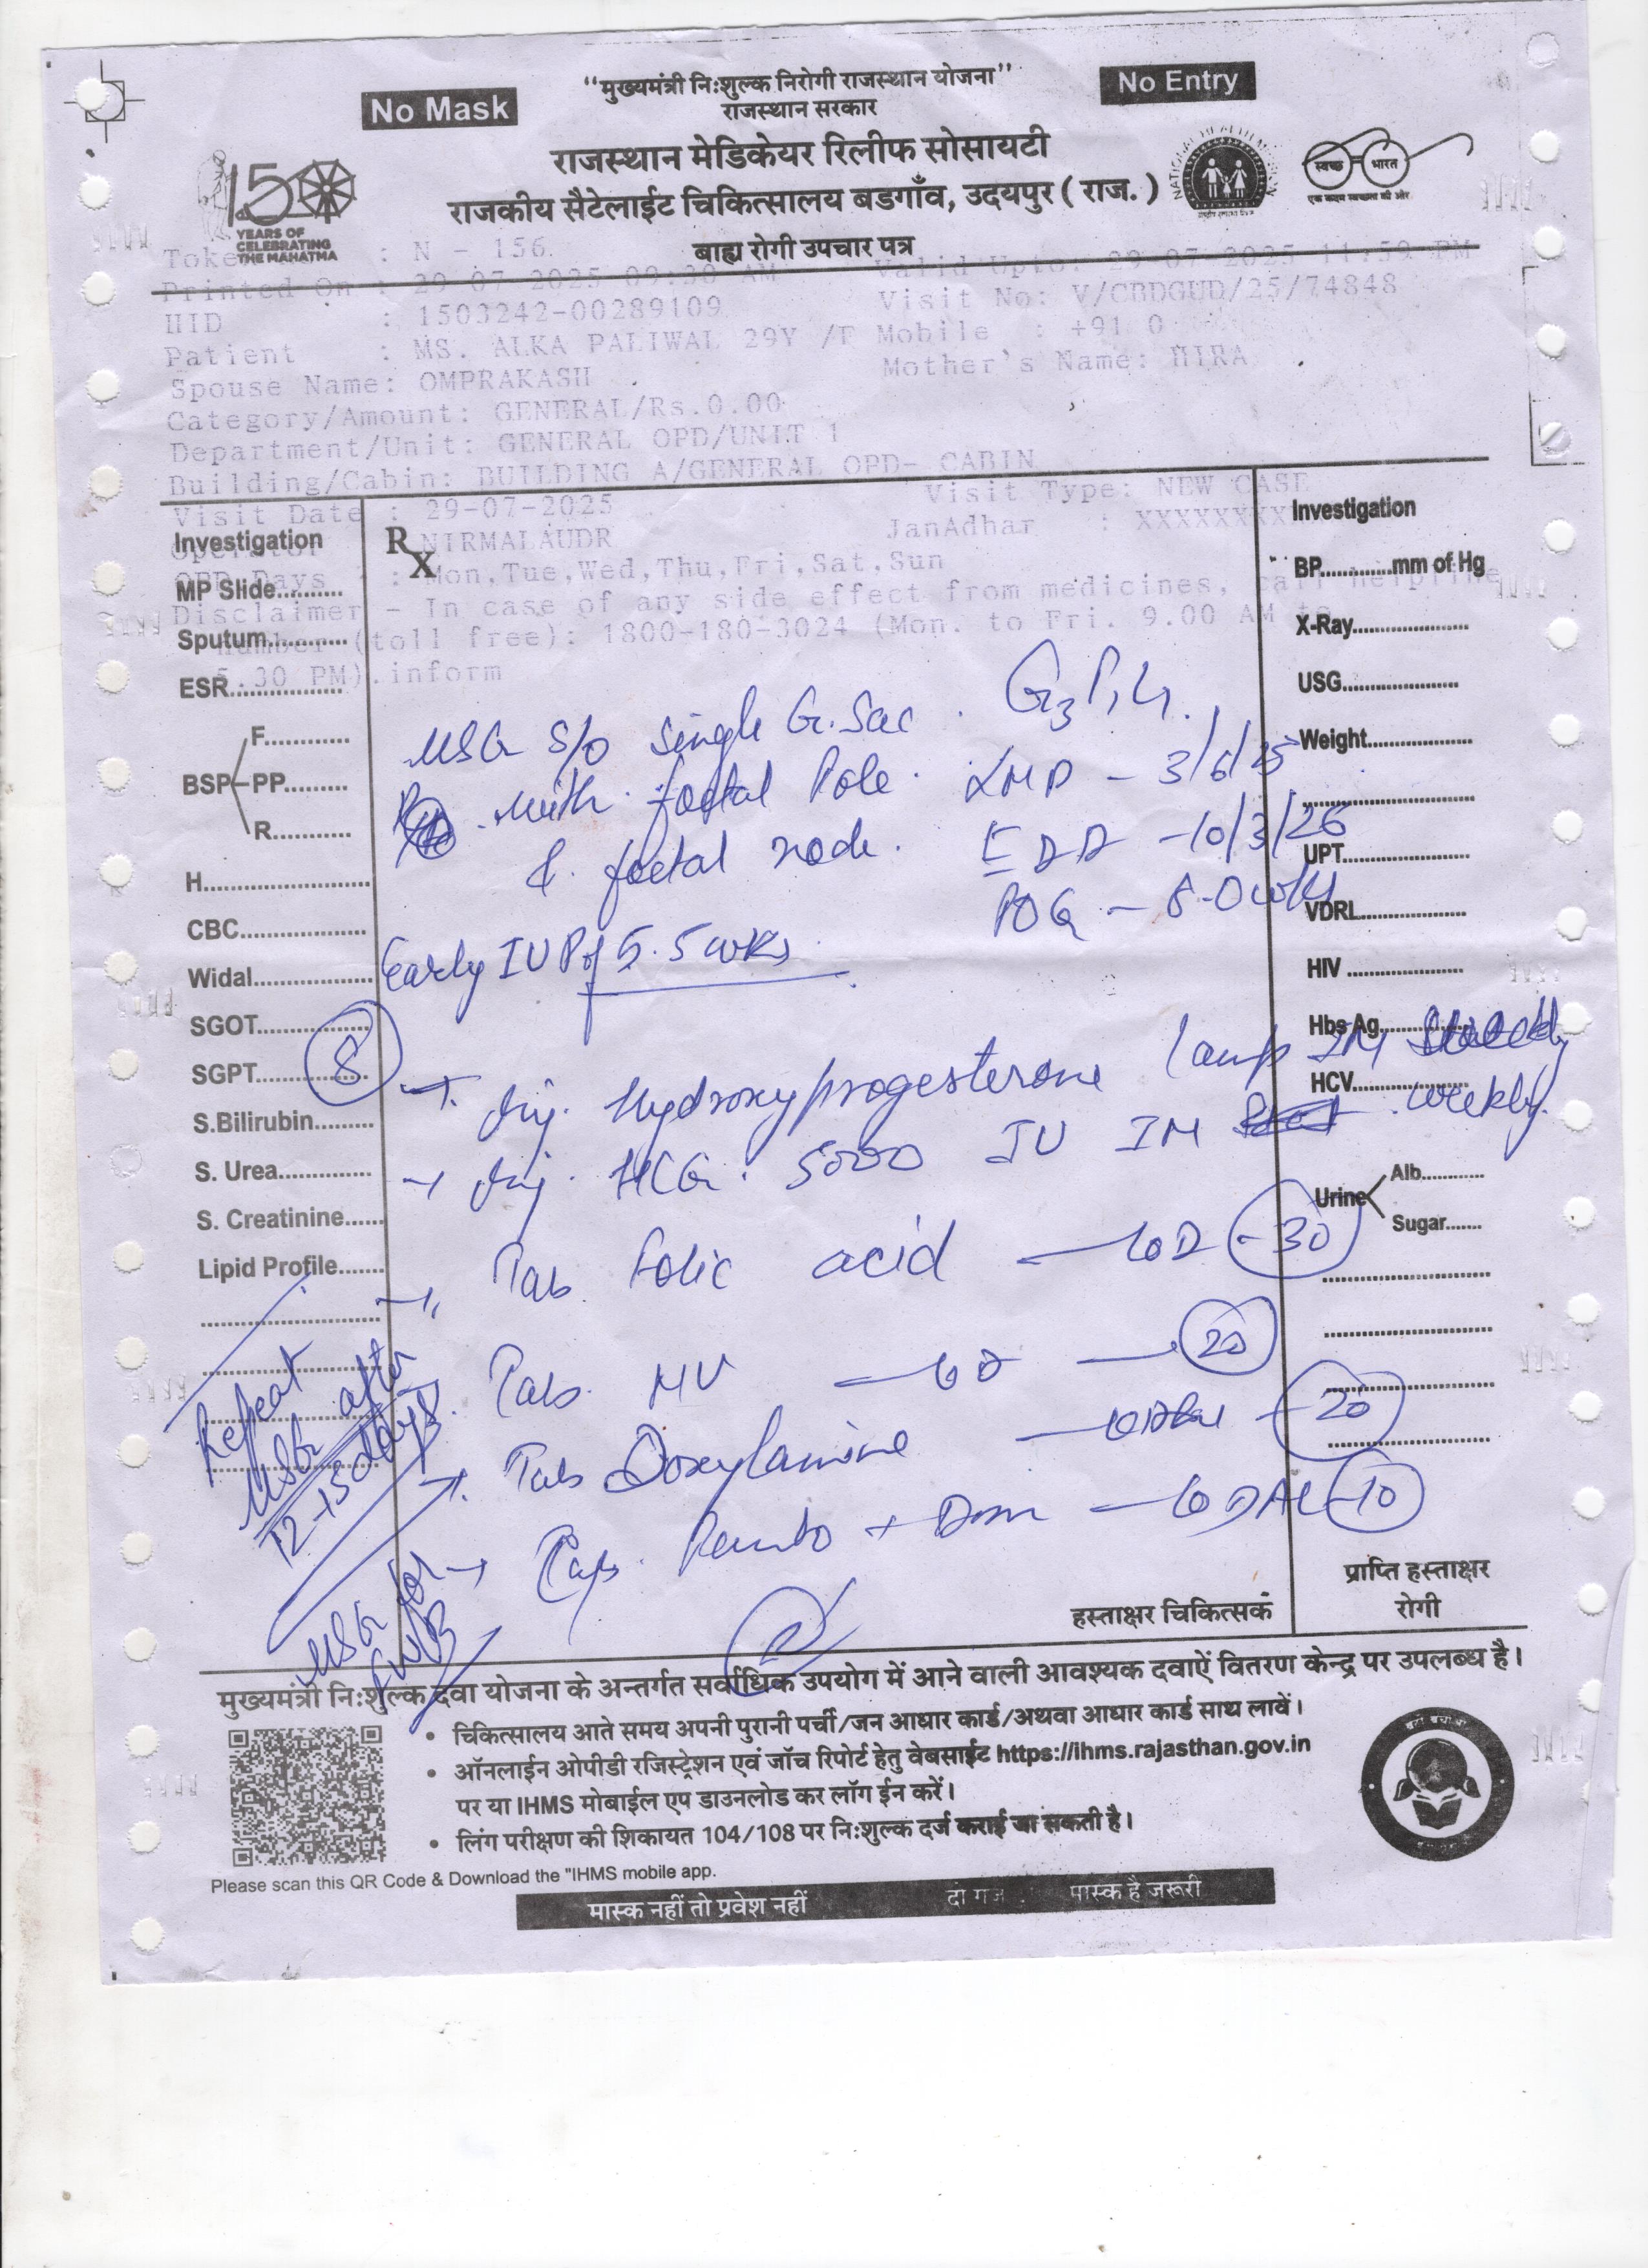 "मुख्यमंत्री निःशुल्क निरोगी राजस्थान योजना"
No Mask
No Entry
राजस्थान सरकार
राजस्थान मेडिकेयर रिलीफ सोसायटी
राजकीय सैटेलाईट चिकित्सालय बडगाँव, उदयपुर ( राज. )
बाह्य रोगी उपचार पत्र
150 YEARS OF CELEBRATING THE MAHATMA
स्वच्छ भारत
एक कदम स्वच्छता की ओर
Toke : N - 156
Printed On : 29-07-2025 09:30 AM Valid Upto: 29-07-2025 11:59 PM
HID : 1503242-00289109 Visit No: V/CBDGUD/25/74848
Patient : MS. ALKA PALIWAL 29Y /F Mobile : +91 0
Spouse Name: OMPRAKASH Mother's Name: HIRA
Category/Amount: GENERAL/Rs.0.00
Department/Unit: GENERAL OPD/UNIT 1
Building/Cabin: BUILDING A/GENERAL OPD- CABIN
Visit Date : 29-07-2025 Visit Type: NEW CASE
Operator : NIRMALAUDR JanAdhar : XXXXXXXX
OPD Days : Mon,Tue,Wed,Thu,Fri,Sat,Sun
Disclaimer - In case of any side effect from medicines, call helpline
number (toll free): 1800-180-3024 (Mon. to Fri. 9.00 AM to
5.30 PM).inform
Investigation
MP Slide..........
Sputum..............
ESR..................
BSP F.............
PP..........
R............
H...........................
CBC....................
Widal...................
SGOT..................
SGPT..................
S.Bilirubin..........
S. Urea...............
S. Creatinine......
Lipid Profile.......
Rx
USG S/O Single G.Sac. G3P1L1.
with foetal Pole. LMP - 3/6/25
& foetal node. EDD - 10/3/26
POG - 8.0 wks
Early IUP of 5.5 wks.
8
→ Inj. Hydroxyprogesterone 1 amp IM weekly
→ Inj. HCG. 5000 IU IM weekly.
→ Tab Folic acid — 1 OD - 30
Tab. MV — 1 OD — 20
→ Tab Doxylamine — - 20
→ Cap. Panto + Dom — 1 OD AC - 10
Repeat
USG after
12-15 days
USG for
FWB
Investigation
BP..............mm of Hg
X-Ray.......................
USG.......................
Weight....................
UPT.........................
VDRL......................
HIV .......................
Hbs Ag...................
HCV.......................
Urine Alb............
Sugar.......
हस्ताक्षर चिकित्सक
प्राप्ति हस्ताक्षर
रोगी
मुख्यमंत्री निःशुल्क दवा योजना के अन्तर्गत सर्वाधिक उपयोग में आने वाली आवश्यक दवाऐं वितरण केन्द्र पर उपलब्ध है।
• चिकित्सालय आते समय अपनी पुरानी पर्ची/जन आधार कार्ड/अथवा आधार कार्ड साथ लावें।
• ऑनलाईन ओपीडी रजिस्ट्रेशन एवं जाँच रिपोर्ट हेतु वेबसाईट https://ihms.rajasthan.gov.in
पर या IHMS मोबाईल एप डाउनलोड कर लॉग ईन करें।
• लिंग परीक्षण की शिकायत 104/108 पर निःशुल्क दर्ज कराई जा सकती है।
Please scan this QR Code & Download the "IHMS mobile app.
मास्क नहीं तो प्रवेश नहीं
दो गज मास्क है जरूरी